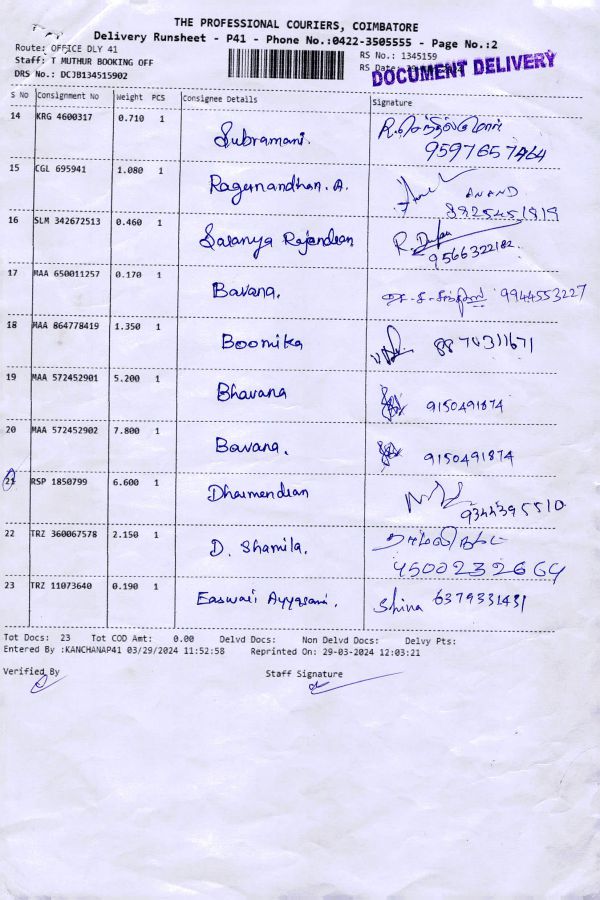 THE PROFESSIONAL COURIERS, COIMBATORE
Delivery Runsheet - P41 - Phone No.:0422-3505555 - Page No.:2
Route: OFFICE DLY 41
RS No.: 1345159
Staff: T MUTHUR BOOKING OFF
RS Date:
DOCUMENT DELIVERY
DRS No.: DCJB134515902
S No Consignment No Weight PCS Consignee Details Signature
14 KRG 4600317 0.710 1 Subramani. 9597657464
15 CGL 695941 1.080 1 Ragunandhan. A. ANAND
8825451819
16 SLM 342672513 0.460 1 Saranya Rajendran 9566322182
17 MAA 650011257 0.170 1 Bavana. 9944553227
18 MAA 864778419 1.350 1 Boomika 8870311671
19 MAA 572452901 5.200 1 Bhavana 9150491874
20 MAA 572452902 7.800 1 Bavana. 9150491874
21 RSP 1850799 6.600 1 Dharmendran 9344395510
22 TRZ 360067578 2.150 1 D. Shamila.
23 TRZ 11073640 0.190 1 Easwari Ayyasami. Shina 6379331431
Tot Docs: 23 Tot COD Amt: 0.00 Delvd Docs: Non Delvd Docs: Delvy Pts:
Entered By :KANCHANAP41 03/29/2024 11:52:58 Reprinted On: 29-03-2024 12:03:21
Verified By Staff Signature